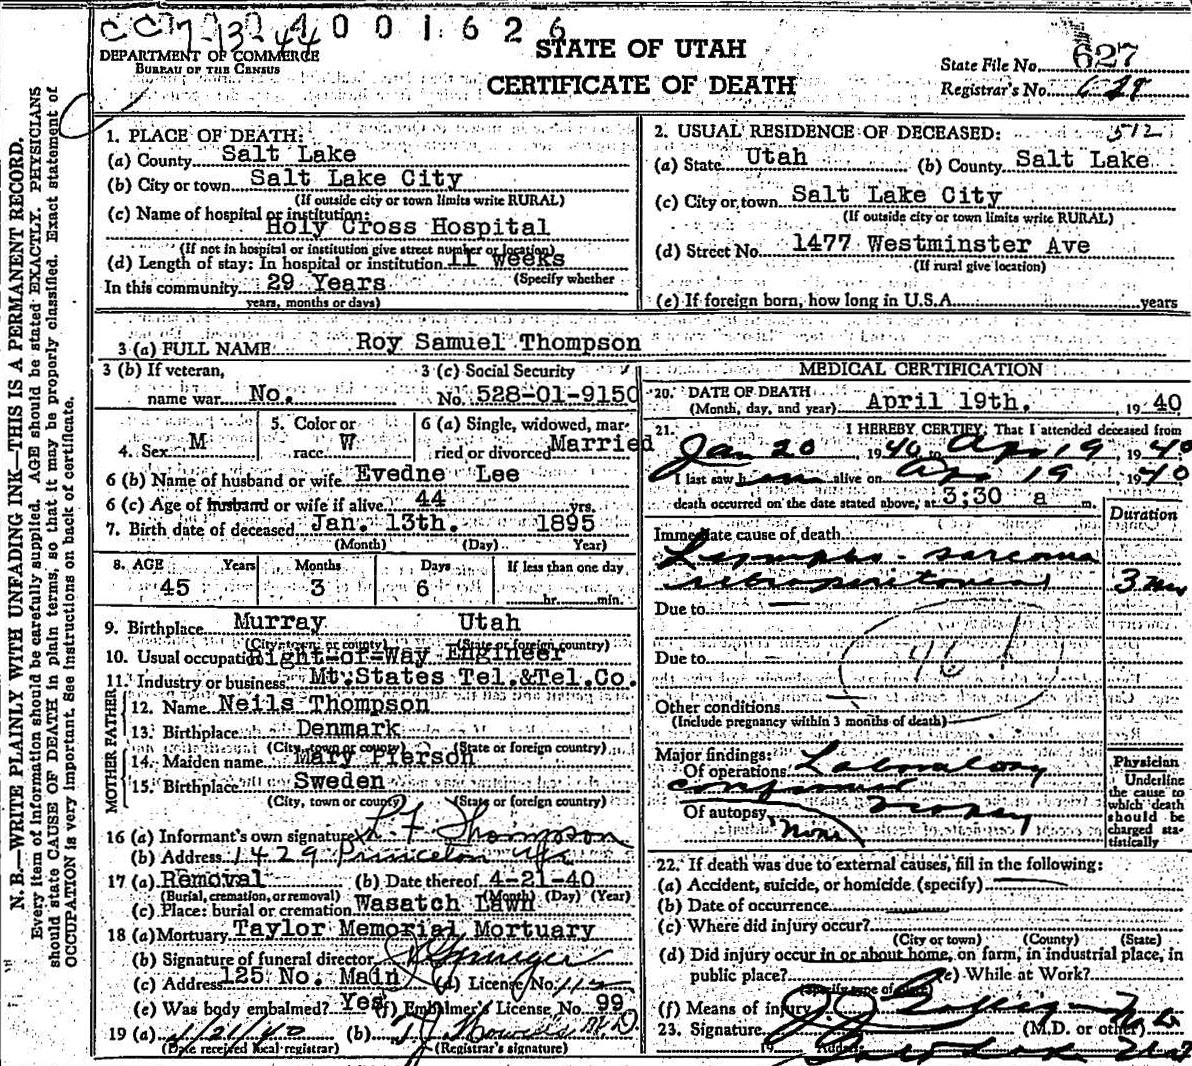 CC 7-13-44 001626
DEPARTMENT OF COMMERCE
BUREAU OF THE CENSUS
STATE OF UTAH
CERTIFICATE OF DEATH
State File No. 627
Registrar's No.
N. B.—WRITE PLAINLY WITH UNFADING INK—THIS IS A PERMANENT RECORD.
Every item of information should be carefully supplied. AGE should be stated EXACTLY. PHYSICIANS
should state CAUSE OF DEATH in plain terms, so that it may be properly classified. Exact statement of
OCCUPATION is very important. See instructions on back of certificate.
1. PLACE OF DEATH:
(a) County Salt Lake
(b) City or town Salt Lake City
(If outside city or town limits write RURAL)
(c) Name of hospital or institution:
Holy Cross Hospital
(If not in hospital or institution give street number or location)
(d) Length of stay: In hospital or institution 11 weeks
(Specify whether
In this community 29 Years
years, months or days)
2. USUAL RESIDENCE OF DECEASED: 512
(a) State Utah (b) County Salt Lake
(c) City or town Salt Lake City
(If outside city or town limits write RURAL)
(d) Street No. 1477 Westminster Ave
(If rural give location)
(e) If foreign born, how long in U.S.A. years
3 (a) FULL NAME Roy Samuel Thompson
3 (b) If veteran,
name war No.
3 (c) Social Security
No. 528-01-9150
4. Sex M
5. Color or
race W
6 (a) Single, widowed, mar-
ried or divorced Married
6 (b) Name of husband or wife Evedne Lee
6 (c) Age of husband or wife if alive 44 yrs.
7. Birth date of deceased Jan. 13th. 1895
(Month) (Day) Year)
8. AGE Years Months Days If less than one day
45 3 6 hr. min.
9. Birthplace Murray Utah
(City, town, or county) (State or foreign country)
10. Usual occupation Right-of-Way Engineer
11. Industry or business Mt.States Tel.&Tel.Co.
FATHER
12. Name Neils Thompson
13. Birthplace Denmark
(City, town or county) (State or foreign country)
MOTHER
14. Maiden name Mary Pierson
15. Birthplace Sweden
(City, town or county) (State or foreign country)
16 (a) Informant's own signature Thompson
(b) Address 1429 Princeton Ave
17 (a) Removal (b) Date thereof 4-21-40
(Burial, cremation, or removal) (Month) (Day) (Year)
(c) Place: burial or cremation Wasatch Lawn
18 (a) Mortuary Taylor Memorial Mortuary
(b) Signature of funeral director
(c) Address 125 No. Main (d) License No.
(e) Was body embalmed? Yes (f) Embalmer's License No. 99
19 (a) 4/21/40 (b) M.D.
(Date received local registrar) (Registrar's signature)
MEDICAL CERTIFICATION
20. DATE OF DEATH
(Month, day, and year) April 19th. 1940
21. I HEREBY CERTIFY, That I attended deceased from
Jan 20, 1940 to Apr 19, 1940
I last saw him alive on Apr 19 1940
death occurred on the date stated above, at 3:30 a m.
Duration
Immediate cause of death
Lympho-sarcoma
retroperitoneal 3 mos
Due to
Due to
Other conditions
(Include pregnancy within 3 months of death)
Major findings:
Of operations Laboratory
confirmed biopsy
Of autopsy None
Physician
Underline
the cause to
which death
should be
charged sta-
tistically
22. If death was due to external causes, fill in the following:
(a) Accident, suicide, or homicide (specify)
(b) Date of occurrence
(c) Where did injury occur?
(City or town) (County) (State)
(d) Did injury occur in or about home, on farm, in industrial place, in
public place? (e) While at Work?
(Specify type of place)
(f) Means of injury
23. Signature (M.D. or other)
19 Address Salt Lake Utah